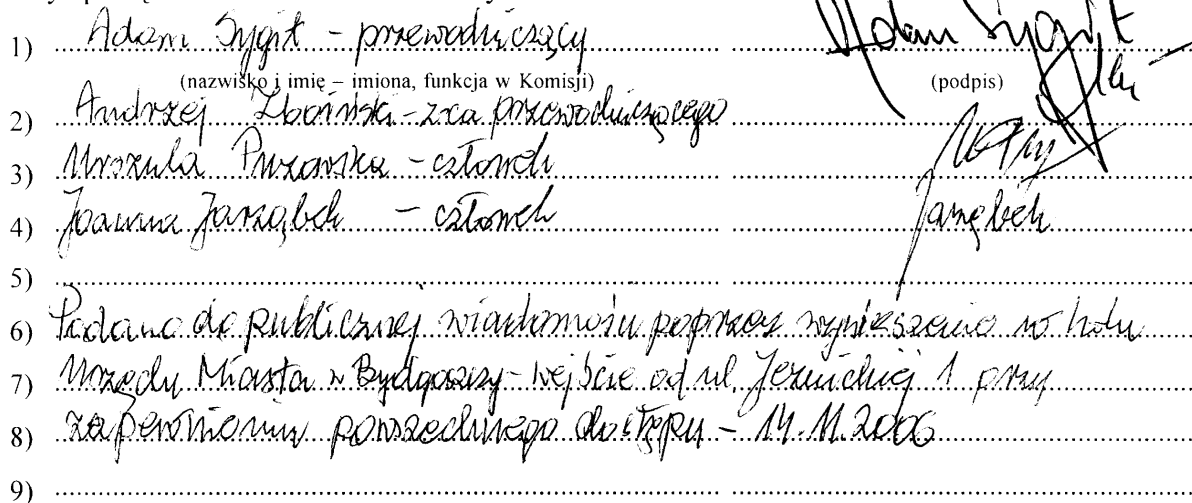 1) Adam Sygit - przewodniczący Adam Sygit
(nazwisko i imię – imiona, funkcja w Komisji) (podpis)
2) Andrzej Zboiński - z-ca przewodniczącego
3) Urszula - członek
4) Joanna Jarząbek - członek Jarząbek
5)
6) Podano do publicznej wiadomości poprzez wywieszenie w holu
7) Urzędu Miasta w Bydgoszczy - wejście od ul. Jezuickiej 1 przy
8) zapewnieniu powszechnego dostępu - 14.11.2006
9)